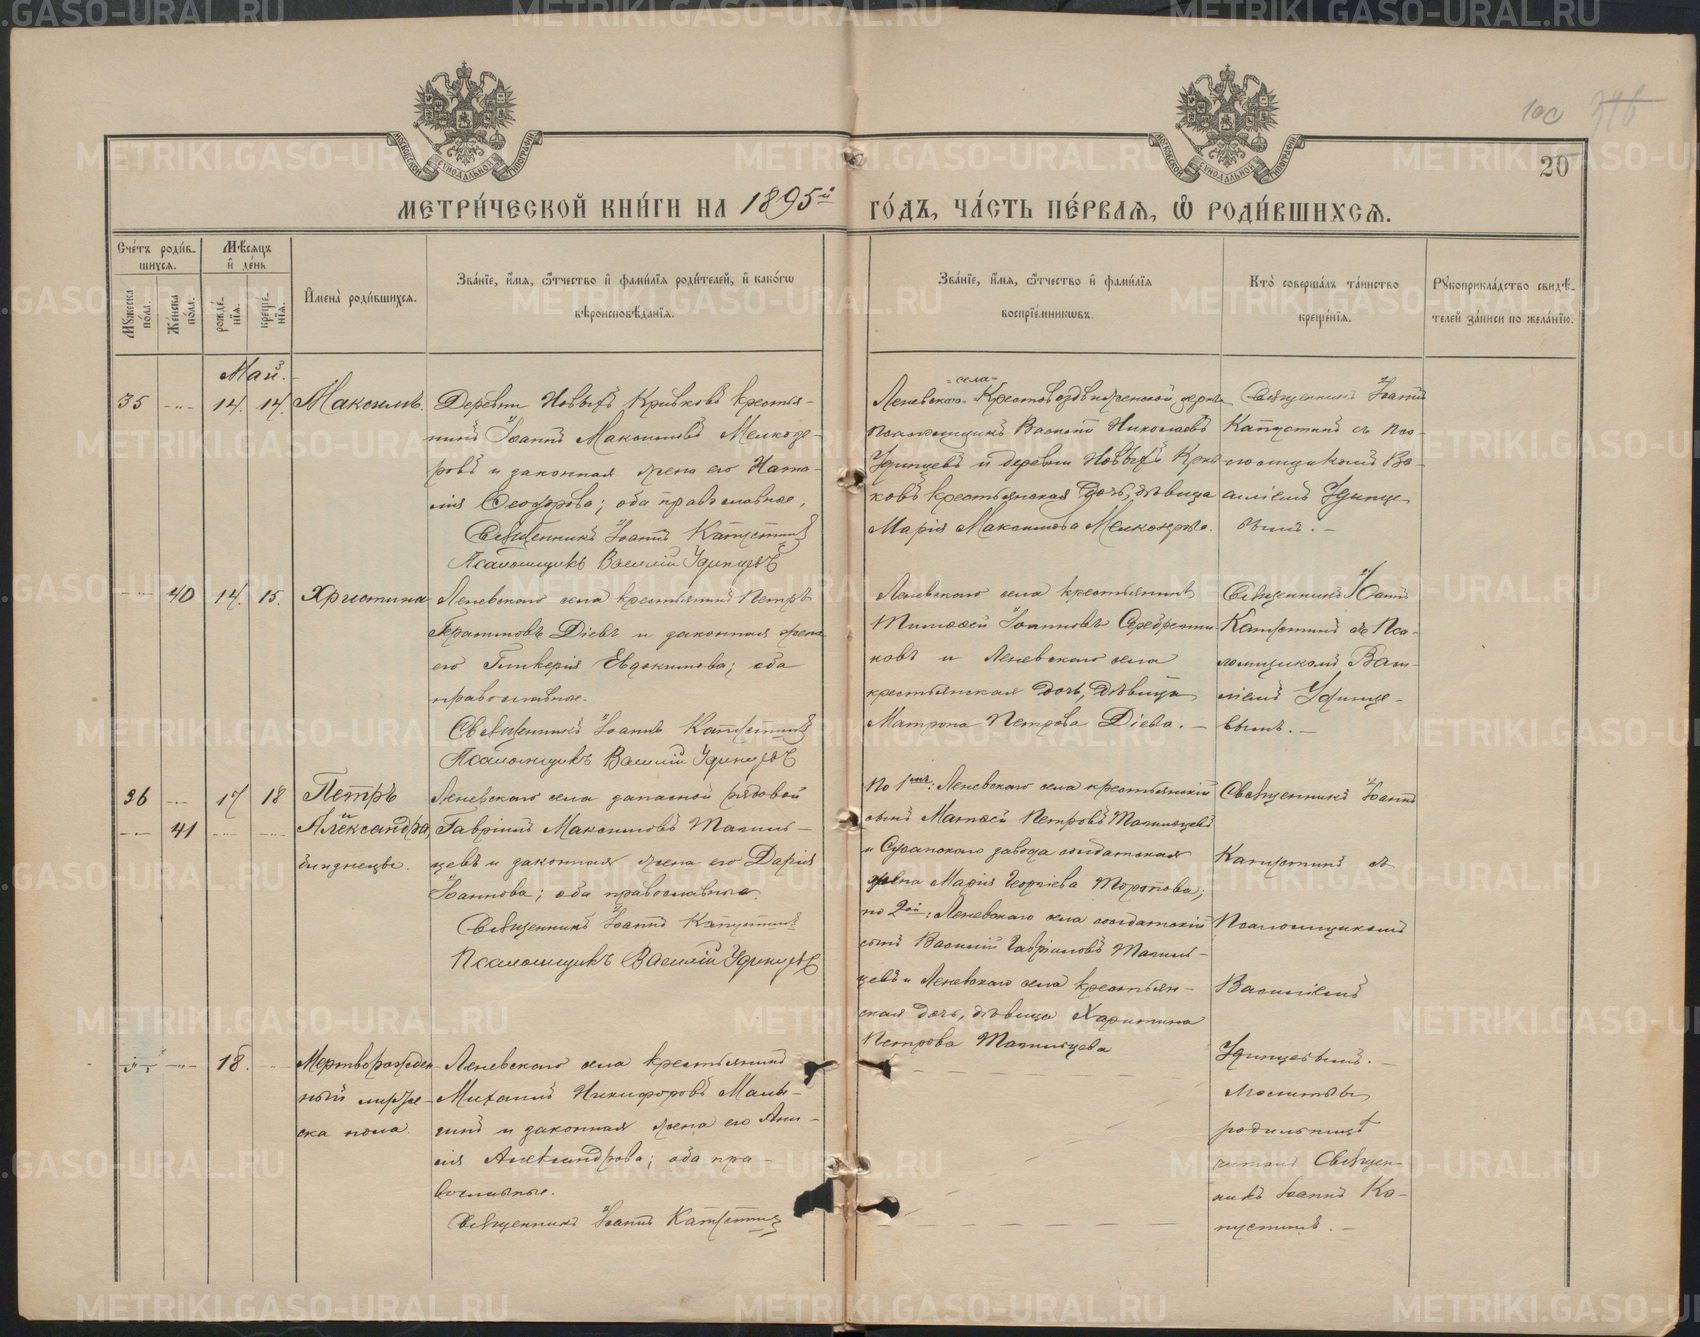 METRIKI.GASO-URAL.RU
100 776
20
МОСКОВСКОЙ СѴНОДАЛЬНОЙ ТИПОГРАФІИ
МОСКОВСКОЙ СѴНОДАЛЬНОЙ ТИПОГРАФІИ
МЕТРИ́ЧЕСКОЙ КНИ́ГИ НА 1895й ГО́ДЪ, ЧА́СТЬ ПЕ́РВАЯ, Ѡ РОДИ́ВШИХСѦ.
Сче́тъ роди́в-
шихсѧ.
Мꙋжеска по́ла.
Же́нска по́ла.
Мѣ́сѧцъ
и҆ де́нь
рожде́-
нїѧ.
креще́-
нїѧ.
И҆мена̀ роди́вшихсѧ.
Зва́нїе, и҆́мѧ, ѻ҆́тчество и҆ фами́лїѧ роди́телей, и҆ како́гѡ
вѣроисповѣ́данїѧ.
Зва́нїе, и҆́мѧ, ѻ҆́тчество и҆ фами́лїѧ
воспрїе́мникѡвъ.
Кто̀ соверша́лъ та́инство
креще́нїѧ.
Рꙋкоприкла́дство свидѣ́-
телей за́писи по жела́нїю.
Май.
35 14. 14. Максимъ.
Деревни Новыхъ Кривковъ крестья-
нинъ Іоаннъ Максимовъ Мелкозе-
ровъ и законная жена его Ната-
лія Ѳеодорова; оба православные.
Священникъ Іоаннъ Капустинъ
Псаломщикъ Василій Удинцевъ
Леневского села Крестовоздвиженской церкви
Псаломщикъ Василій Николаевъ
Удинцевъ и деревни Новыхъ Крив-
ковъ крестьянская дочь, дѣвица
Марія Максимова Мелкозерова.
Священникъ Іоаннъ
Капустинъ съ Пса-
ломщикомъ Ва-
силіемъ Удинце-
вымъ.
40 14. 15. Христина
Леневского села крестьянинъ Петръ
Діевъ и законная жена
его Гликерія Евдокимова; оба
православные.
Священникъ Іоаннъ Капустинъ
Псаломщикъ Василій Удинцевъ
Леневского села крестьянинъ
Тимоѳей Іоанновъ Серебренни-
ковъ и Леневского села
крестьянская дочь, дѣвица
Матрона Петрова Діева.
Священникъ Іоаннъ
Капустинъ съ Пса-
ломщикомъ Васи-
ліемъ Удинце-
вымъ.
36 17 18 Петръ
41 Александра
близнецы.
Леневского села запасной рядовой
Гавріилъ Максимовъ Тагиль-
цевъ и законная жена его Дарія
Іоаннова; оба православные.
Священникъ Іоаннъ Капустинъ
Псаломщикъ Василій Удинцевъ
По 1мъ: Леневского села крестьянскій
сынъ Матѳей Петровъ Тагильцевъ
и Сусанского завода солдатская
жена Марія Георгіева Торопова;
по 2ой: Леневского села солдатскій
сынъ Василій Гавріиловъ Тагиль-
цевъ и Леневского села крестьян-
ская дочь, дѣвица Харитина
Петрова Тагильцева
Священникъ Іоаннъ
Капустинъ съ
Псаломщикомъ
Василіемъ
Удинцевымъ.
18. Мертворожден-
ный муже-
ска пола.
Леневского села крестьянинъ
Михаилъ Никифоровъ Маль-
гинъ и законная жена его
Александрова; оба пра-
вославные.
Священникъ Іоаннъ Капустинъ
Молитвы
родильницѣ
читалъ Священ-
никъ Іоаннъ Ка-
пустинъ.